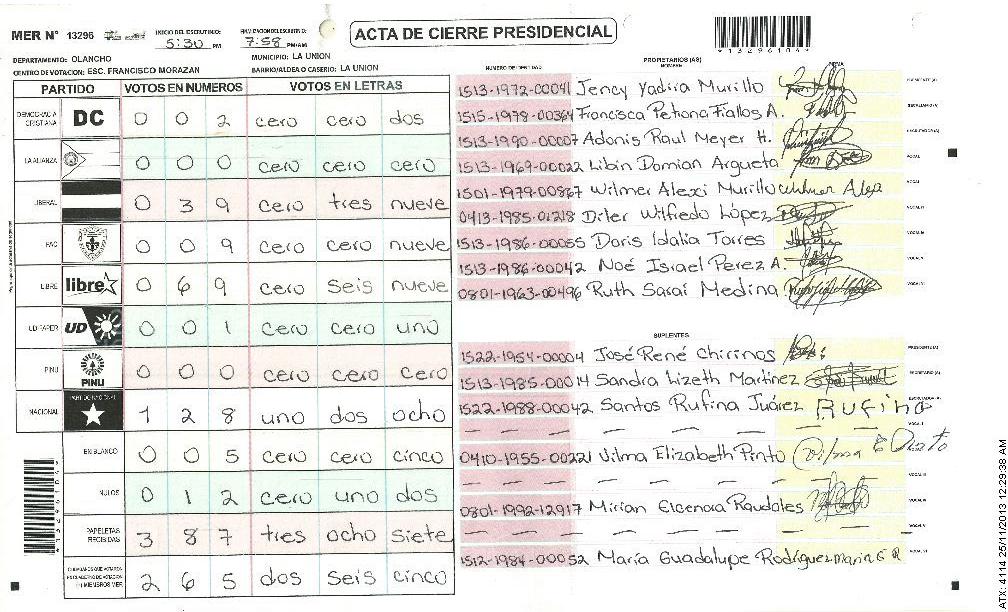 MER N° 13296 INICIO DEL ESCRUTINIO: 5:30 PM FINALIZACION ESCRUTINIO: 7:58 PM/AM
ACTA DE CIERRE PRESIDENCIAL
*13296104*
DEPARTAMENTO: OLANCHO MUNICIPIO: LA UNION
CENTRO DE VOTACION: ESC. FRANCISCO MORAZAN BARRIO/ALDEA O CASERIO: LA UNION
PARTIDO VOTOS EN NUMEROS VOTOS EN LETRAS
DEMOCRACIA CRISTIANA DC 0 0 2 cero cero dos
LA ALIANZA 0 0 0 cero cero cero
LIBERAL 0 3 9 cero tres nueve
PAC 0 0 9 cero cero nueve
LIBRE libre 0 6 9 cero seis nueve
UD FAPER UD 0 0 1 cero cero uno
PINU PINU 0 0 0 cero cero cero
NACIONAL PARTIDO NACIONAL 1 2 8 uno dos ocho
EN BLANCO 0 0 5 cero cero cinco
NULOS 0 1 2 cero uno dos
PAPELETAS RECIBIDAS 3 8 7 tres ocho siete
CIUDADANOS QUE VOTARON EN CUADERNO DE VOTACION (+) MIEMBROS MER 2 6 5 dos seis cinco
PROPIETARIOS (AS)
NUMERO DE IDENTIDAD NOMBRE FIRMA
1513-1972-00041 Jency Yadira Murillo PRESIDENTE(A)
1515-1978-00364 Francisca Petrona Fiallos A. SECRETARIO(A)
1513-1990-00007 Adonis Raul Meyer H. ESCRUTADOR(A)
1513-1969-00022 Libin Domian Argueta VOCAL I
1501-1979-00867 Wilmer Alexi Murillo VOCAL II
0413-1985-01218 Dirler Wilfredo López VOCAL III
1513-1986-00055 Doris Idalia Torres VOCAL IV
1513-1986-00042 Noé Israel Perez A. VOCAL V
0801-1963-00496 Ruth Sarai Medina VOCAL VI
SUPLENTES
1522-1954-00004 José René Chirinos PRESIDENTE(A)
1513-1985-00014 Sandra Lizeth Martinez SECRETARIO(A)
1522-1988-00042 Santos Rufina Juárez Rufina ESCRUTADOR(A)
0410-1955-00221 Vilma Elizabeth Pinto Vilma E Pinto
0801-1992-12917 Mirian Elcenora Raudales
1512-1984-00052 María Guadalupe Rodríguez maria G R VOCAL VI
ATX: 4114 25/11/2013 12:29:38 AM